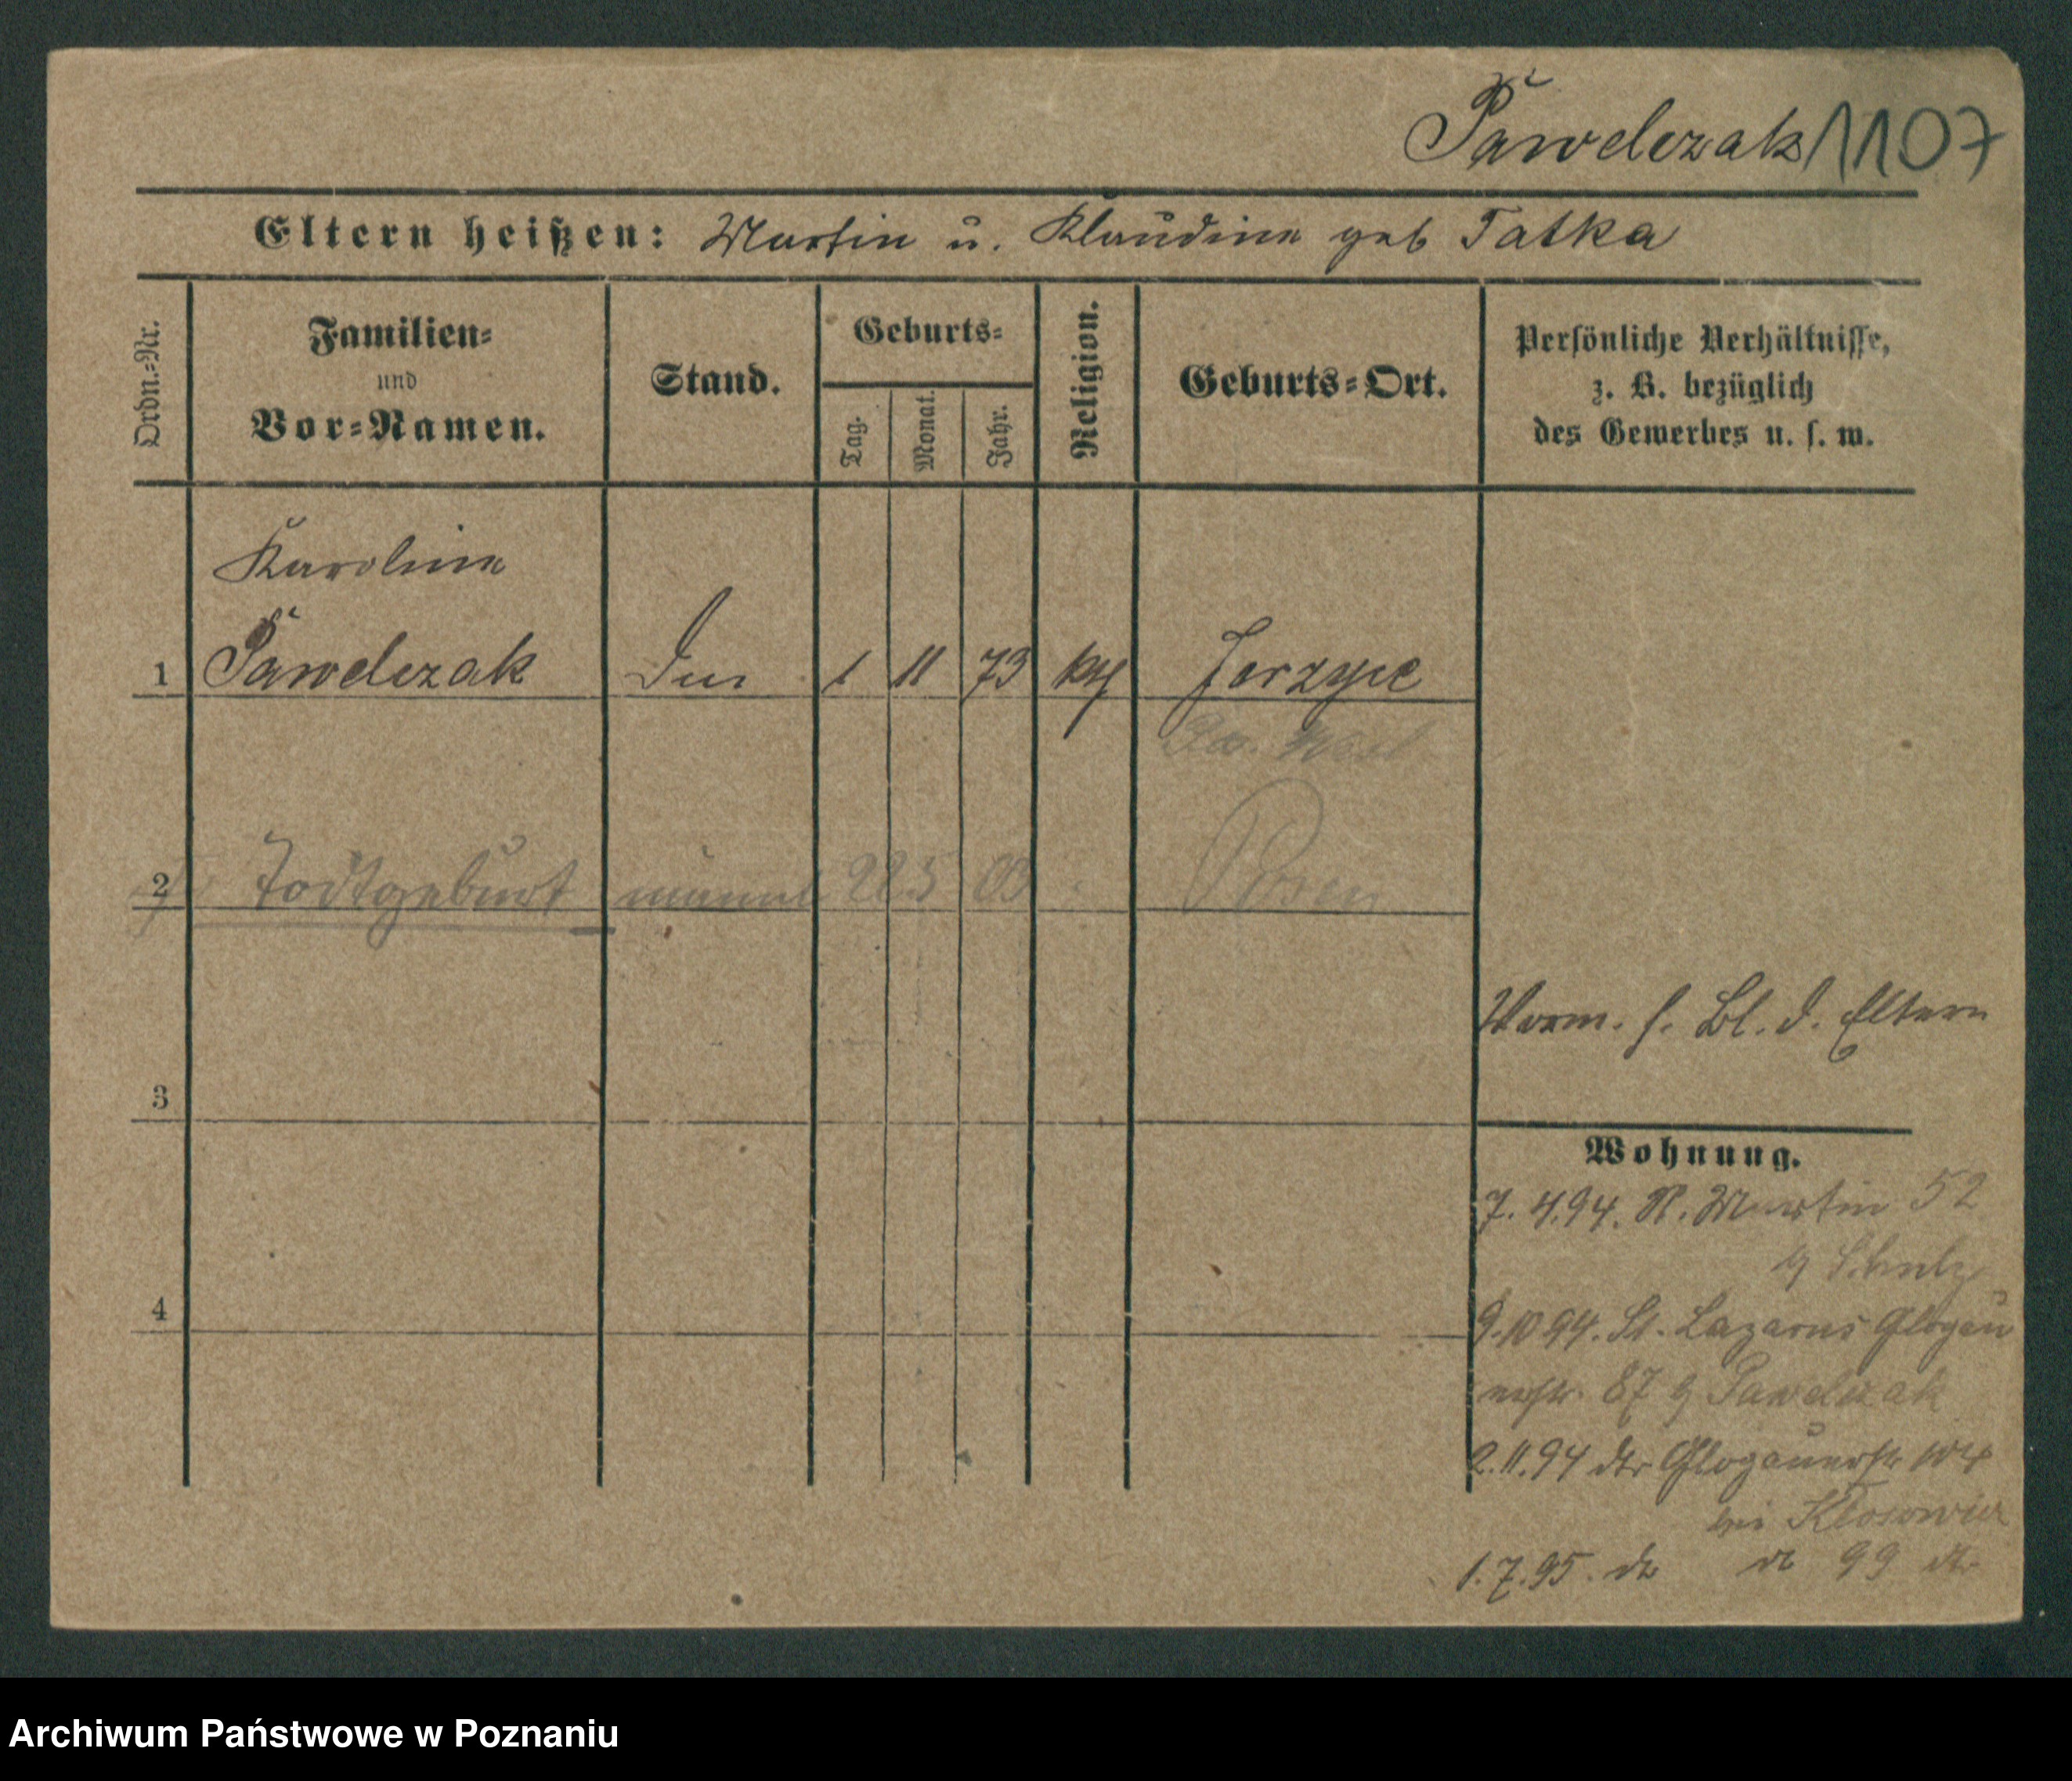 Pawelczak 1107
Eltern heißen: Martin u. Klaudine geb Tatka
Ordn.-Nr.
Familien-
und
Vor-Namen.
Stand.
Geburts-
Tag.
Monat.
Jahr.
Religion.
Geburts-Ort.
Persönliche Verhältnisse,
z. B. bezüglich
des Gewerbes u. s. w.
Karoline
1 Pawelczak 1 11 73 kth Jerzyce
2 Todtgeburt männl 22 5 03 Posen
Vorm. s. Bl. d. Eltern
3
Wohnung.
7. 4. 94. St. Martin 52
Schulz
4
9. 10 94. St. Lazarus Glogau
erstr. 87 Pawelczak
2. 11. 94 dto Glogauerstr 104
bei Klosowicz
1. 7. 95. do do 99 do
Archiwum Państwowe w Poznaniu